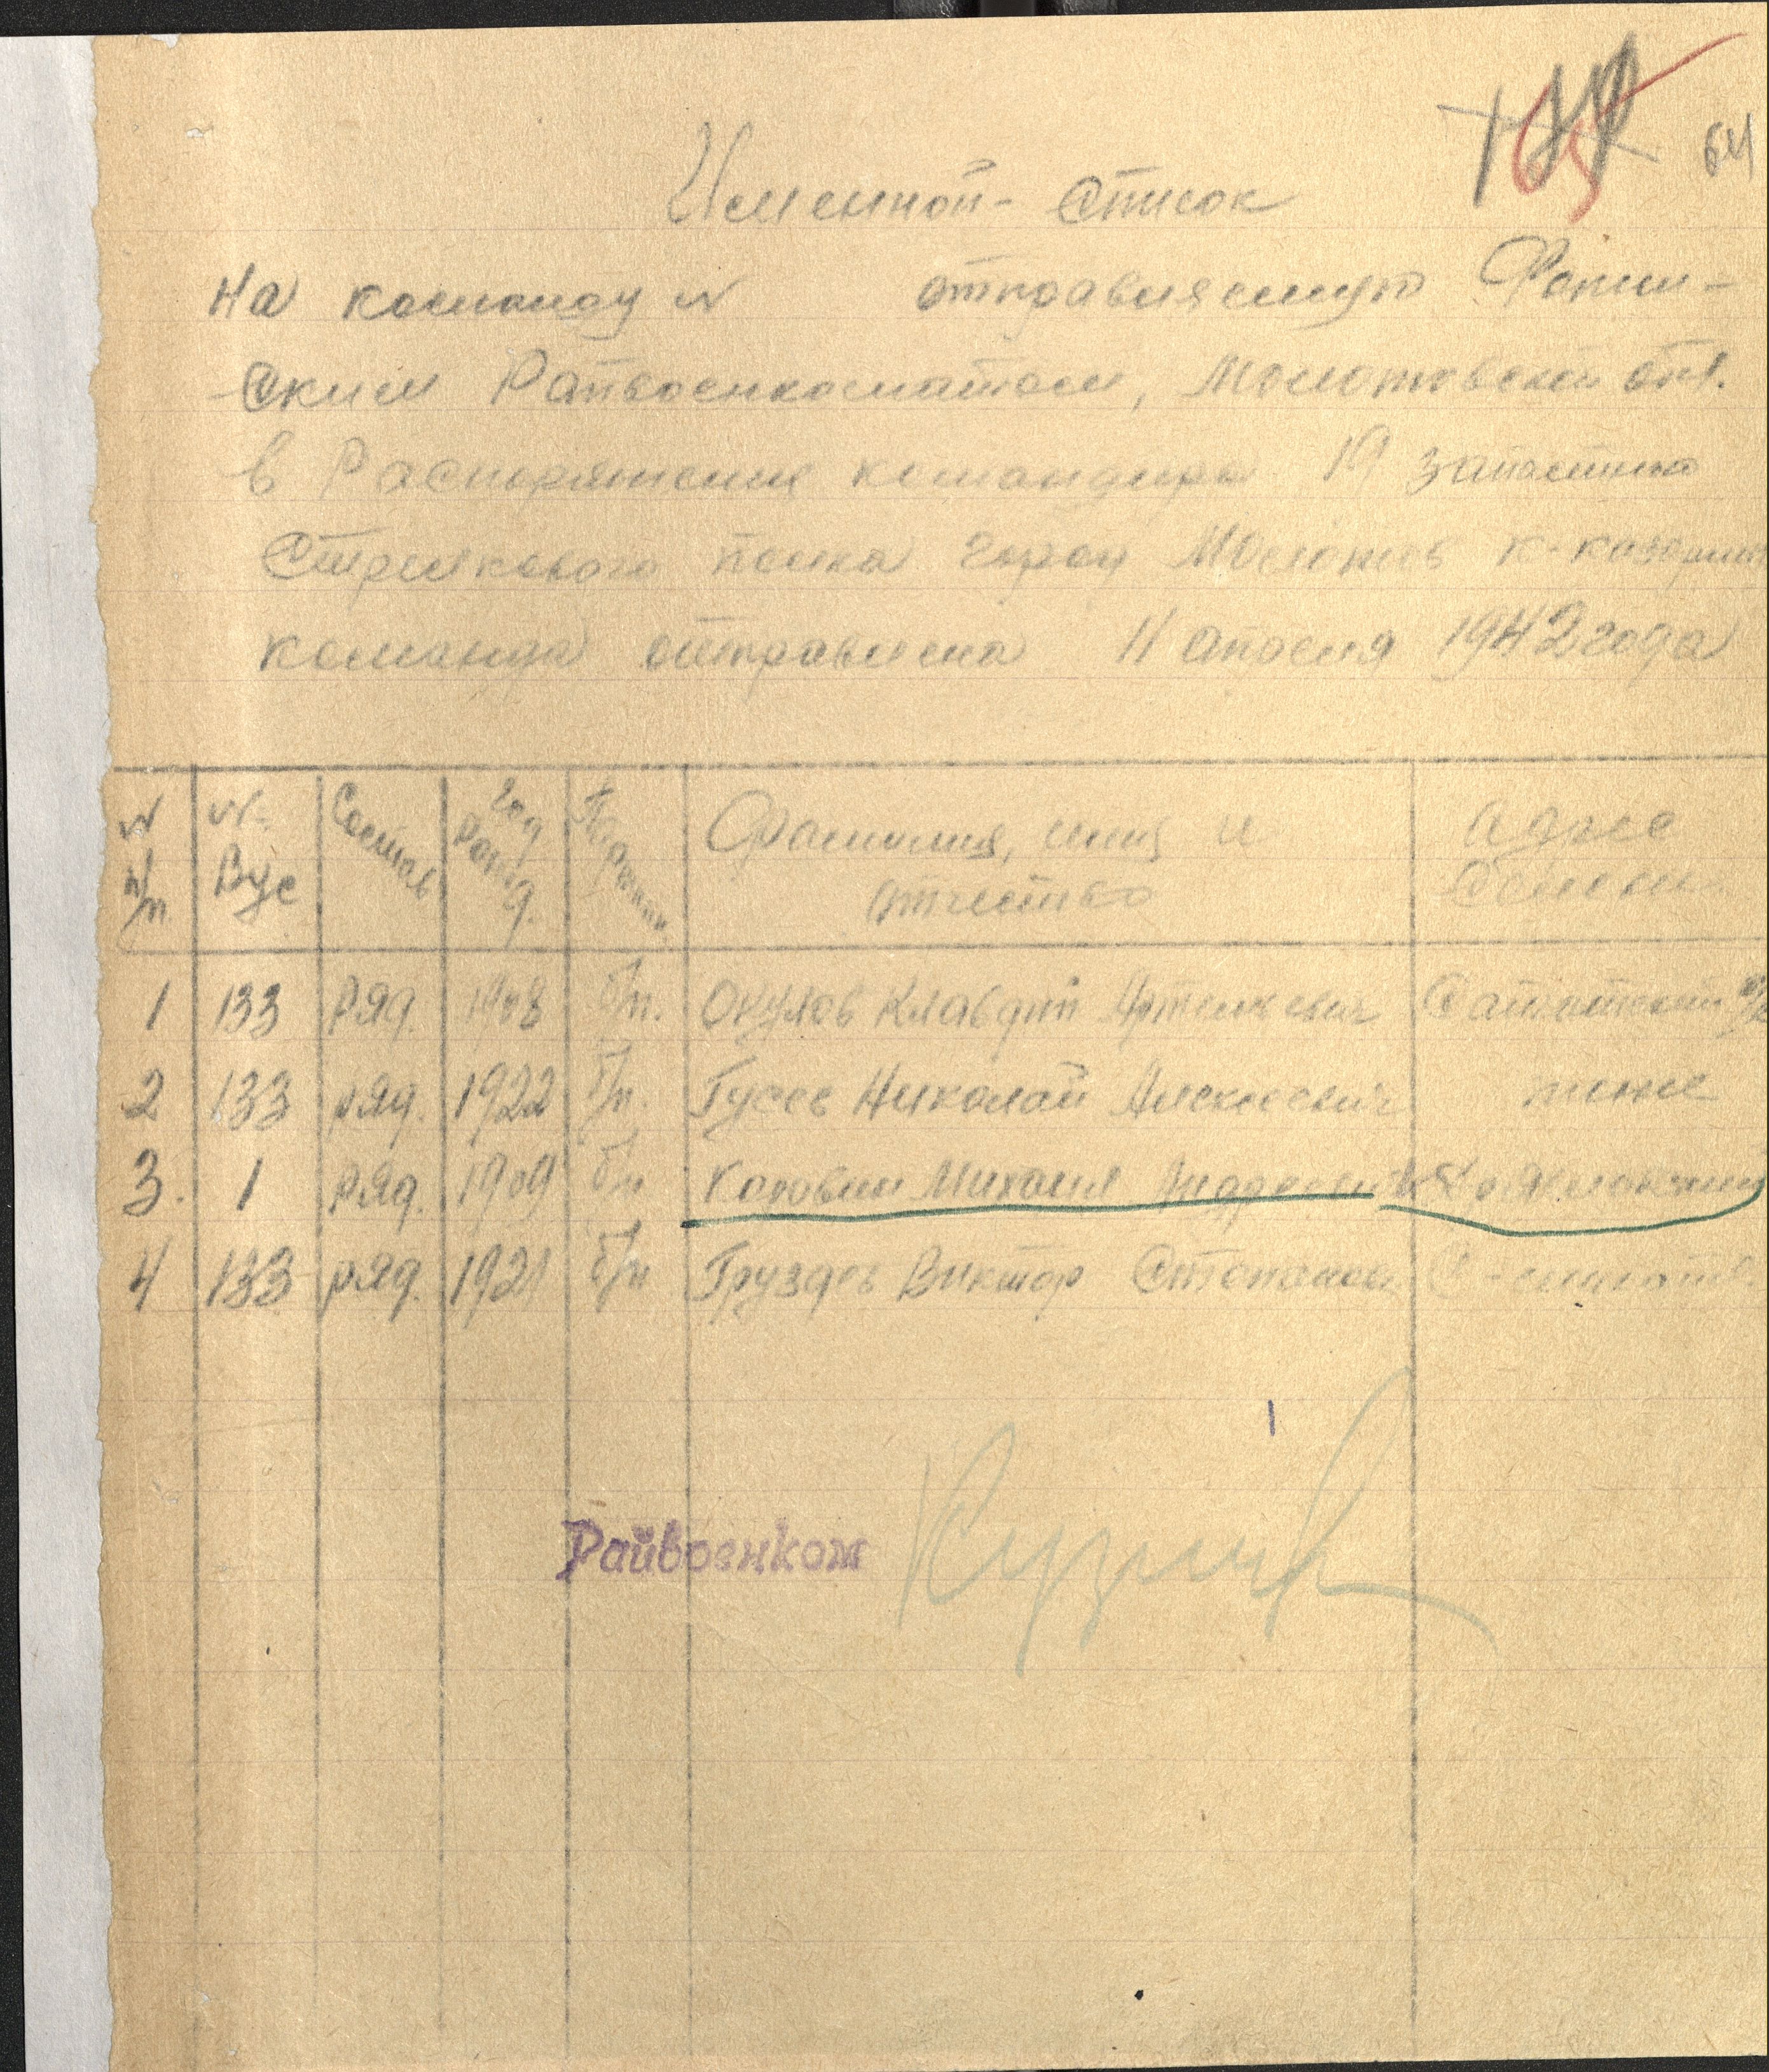 64
65
Именной - Список
На команду № отправляемую Фокин-
ским Райвоенкоматом, Молотовской обл.
в Распоряжение командира 19 запасного
Стрелкового полка город Молотов к-казармы
команда отправлена 11 апреля 1942 года
№ п/п № Вус Состав Год Рожд. Партийн. Фамилия, имя и отчество адрес
1 133 ряд. 1908 б/п. Окулов Клавдий
2 133 ряд. 1922 б/п. Гусев Николай Алексеевич тоже
3. 1 ряд. 1909 б/п Коровин Михаил Андреевич
4 133 ряд. 1921 б/п Груздев Виктор Степанов
Райвоенком